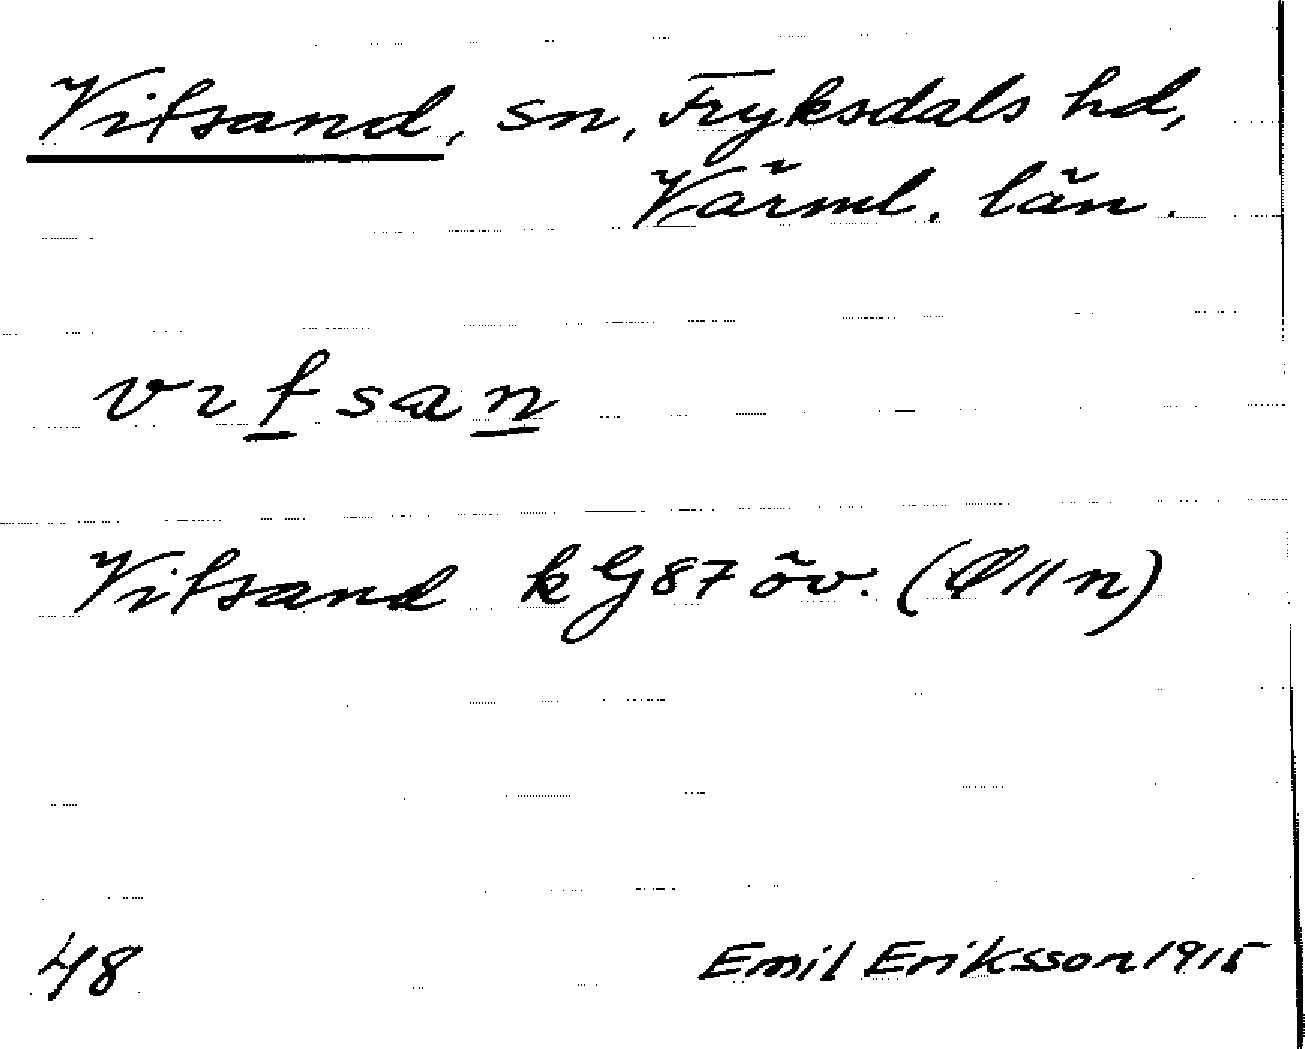 Vitsand, sn, Fryksdals hd,
Värml. län.
vɩtsan
Vitsand kG87 öv. (Ø//n)
48
Emil Eriksson 1915